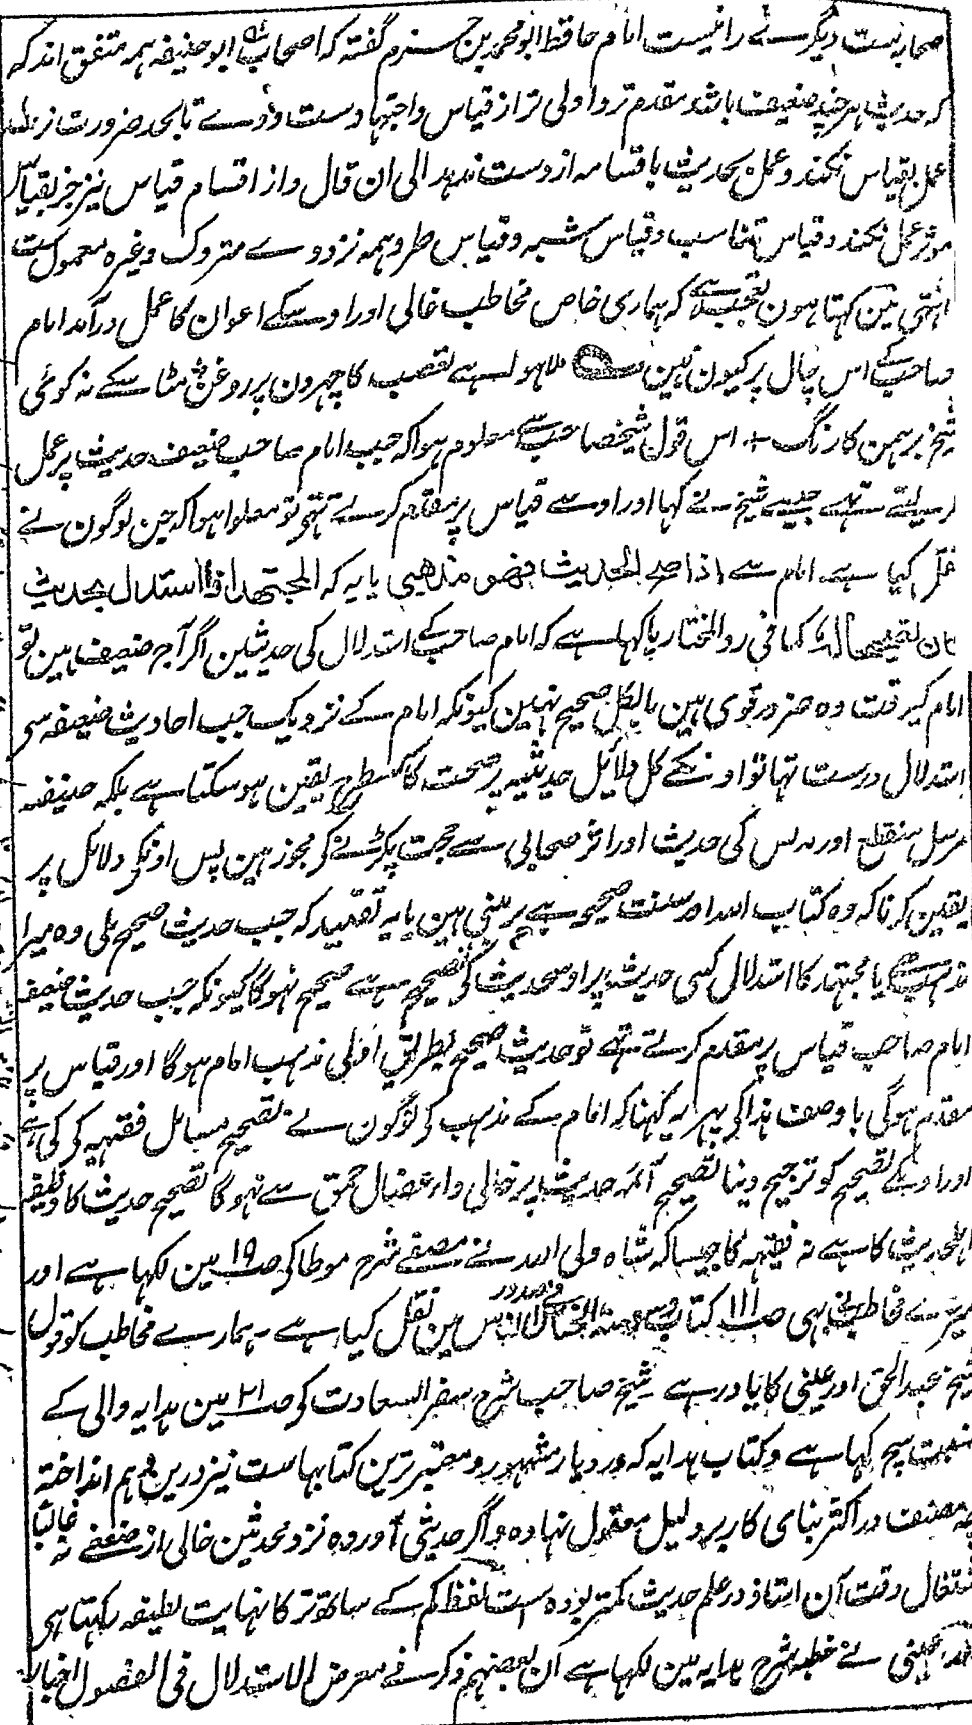 صحابہ نیست دیگرے را نیست امام حافظ ابو محمد بن حزم گفتہ کہ اصحاب ابو حنیفہ ہمہ متفق اند کہ
کہ حدیث ہر چند ضعیف باشد مقدم تر و اولی تر از قیاس و اجتہاد ست و وے تا بحد ضرورت نرسد
عمل بقیاس نکند و عمل بحدیث باقسامہ از دست ندہد الی ان قال و از اقسام قیاس نیز جز بقیاس
موثر عمل نکند و قیاس تناسب و قیاس شبہ و قیاس طرد ہمہ نزد وے متروک و غیرہ معمول ست
انتہی مین کہتا ہون تعجب ہے کہ ہماری خاص مخاطب غالی اور اوسکے اعوان کا عمل درآمد امام
صاحب کے اس چال پر کیون نہین ملا ہو لہے تعصب کا چہرون پر روغن مٹا سکے نہ کوئی
شیخ برہمن کا رنگ + اس قول شیخ صاحب سے معلوم ہوا کہ جب امام صاحب ضعیف حدیث پر عمل
کرلیتے تہے جیسے شیخ نے کہا اور اوسے قیاس پر مقدم کرتے تہے تو معلوم ہوا کہ جن لوگون نے
نقل کیا ہے امام سے اذا صح الحدیث فھو مذھبی یا یہ کہ المجتھد اذا استدل بحدیث
کان تصحیحا لہ کما فی رد المختار یا کہا ہے کہ امام صاحب کے استدلال کی حدیثین اگر آج ضعیف ہین تو
امام کیوقت وہ ضرور قوی ہین بالکل صحیح نہین کیونکہ امام کے نزدیک جب احادیث ضعیفہ سی
استدلال درست تہا تو اونکے کل دلائل حدیثیہ پر صحت کا کسطرح یقین ہو سکتا ہے بلکہ حنیفہ
مرسل منقطع اور مدلس کی حدیث اور اثر صحابی سے حجت پکڑنے کو مجوز ہین پس اونکی دلائل پر
یقین کرنا کہ وہ کتاب اللہ اور سنت صحیحہ ہی پر مبنی ہین یا یہ تقیید کہ جب حدیث صحیح ملی وہ میرا
مذہب ہے یا مجتہد کا استدلال کسی حدیث پر اوس حدیث کی تصحیح ہے صحیح نہوگا کیونکہ جب حدیث ضعیف
امام صاحب قیاس پر مقدم کرتے تہے تو حدیث صحیح بطریق اولی مذہب امام ہوگا اور قیاس پر
مقدم ہوگی باوصف ہذا کی پہر یہ کہنا کہ امام کے مذہب کو لوگون نے تصحیح مسائل فقہیہ کو کی ہے
اور اوسکے تصحیح کو ترجیح دینا تصحیح ائمہ حدیث پر خالی داء عضال حمق سے نہوگا تصحیح حدیث کا وظیفہ
اہلحدیث کا ہے نہ فقیہہ کا جیسا کہ شاہ ولی اللہ نے مصفے شرح موطا کی صـ ١٩ مین لکہا ہے اور
میرے مخاطب نے بہی صـ ١١ کتاب وسوسۃ الخناس فی صدور الناس مین نقل کیا ہے ۔ ہمارے مخاطب کو قول
شیخ عبد الحق اور عینی کا یاد رہے شیخ صاحب شرح سفر السعادت کی صـ ٢١ مین ہدایہ والی کے
نسبت سچ کہا ہے و کتاب ہدایہ کہ در دیار مشہور و معتبر ترین کتابہاست نیز درین وہم انداختہ
چہ مصنف در اکثر بنای کار بر دلیل معقول نہادہ و اگر حدیثی آوردہ نزد محدثین خالی از ضعفے نہ غالبًا
اشتغال وقت آن استاذ در علم حدیث کمتر بودہ است لفظ کم کے ساتھہ تر کا نہایت لطیفہ رکہتا ہی
عینی نے خطبہ شرح ہدایہ مین لکہا ہے ان بعضہم ذکر فے معرض الاستدلال فی الفصول اخبار